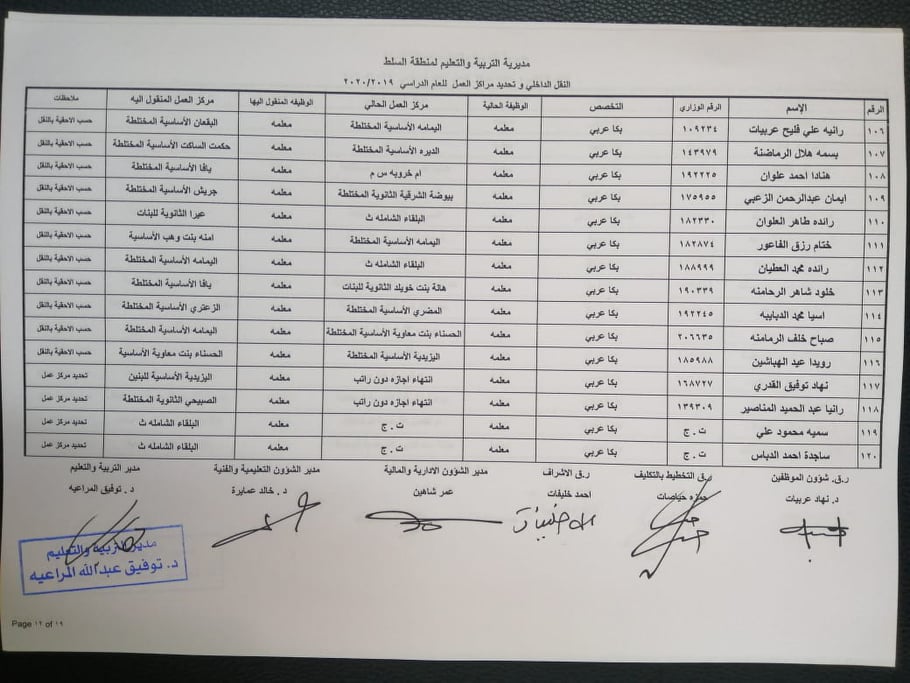 مديرية التربية والتعليم لمنطقة السلط
النقل الداخلي و تحديد مراكز العمل للعام الدراسي ٢٠٢٠/٢٠١٩
الرقم الإسم الرقم الوزاري التخصص الوظيفة الحالية مركز العمل الحالي الوظيفه المنقول اليها مركز العمل المنقول اليه ملاحظات
١٠٦ رانيه علي فليح عربيات ١٠٩٢٣٤ بكا عربي معلمه اليمامه الأساسية المختلطة معلمه البقعان الأساسية المختلطة حسب الاحقية بالنقل
١٠٧ بسمه هلال الرماضنة ١٤٣٩٧٩ بكا عربي معلمه الديره الأساسية المختلطة معلمه حكمت الساكت الأساسية المختلطة حسب الاحقية بالنقل
١٠٨ هنادا احمد علوان ١٩٢٢٢٥ بكا عربي معلمه ام خروبه س م معلمه يافا الأساسية المختلطة حسب الاحقية بالنقل
١٠٩ ايمان عبدالرحمن الزعبي ١٧٥٩٥٥ بكا عربي معلمه بيوضة الشرقية الثانوية المختلطة معلمه جريش الأساسية المختلطة حسب الاحقية بالنقل
١١٠ رائده طاهر العلوان ١٨٢٣٣٠ بكا عربي معلمه البلقاء الشامله ث معلمه عيرا الثانوية للبنات حسب الاحقية بالنقل
١١١ ختام رزق الفاعور ١٨٢٨٧٤ بكا عربي معلمه اليمامه الأساسية المختلطة معلمه امنه بنت وهب الأساسية حسب الاحقية بالنقل
١١٢ رائده محمد العطيان ١٨٨٩٩٩ بكا عربي معلمه البلقاء الشامله ث معلمه اليمامه الأساسية المختلطة حسب الاحقية بالنقل
١١٣ خلود شاهر الرحامنه ١٩٠٣٣٩ بكا عربي معلمه هالة بنت خويلد الثانوية للبنات معلمه يافا الأساسية المختلطة حسب الاحقية بالنقل
١١٤ اسيا محمد الدبايبه ١٩٢٢٤٥ بكا عربي معلمه المضري الأساسية المختلطة معلمه الزعتري الأساسية المختلطة حسب الاحقية بالنقل
١١٥ صباح خلف الرمامنه ٢٠٦٦٣٥ بكا عربي معلمه الحسناء بنت معاوية الأساسية المختلطة معلمه اليمامه الأساسية المختلطة حسب الاحقية بالنقل
١١٦ رويدا عيد الهباشين ١٨٥٩٨٨ بكا عربي معلمه اليزيدية الأساسية المختلطة معلمه الحسناء بنت معاوية الأساسية حسب الاحقية بالنقل
١١٧ نهاد توفيق القدري ١٦٨٧٢٧ بكا عربي معلمه انتهاء اجازه دون راتب معلمه اليزيدية الأساسية للبنين تحديد مركز عمل
١١٨ رانيا عبد الحميد المناصير ١٣٩٣٠٩ بكا عربي معلمه انتهاء اجازه دون راتب معلمه الصبيحي الثانوية المختلطة تحديد مركز عمل
١١٩ سميه محمود علي ت . ج بكا عربي معلمه ت . ج معلمه البلقاء الشامله ث تحديد مركز عمل
١٢٠ ساجدة احمد الدباس ت . ج بكا عربي معلمه ت . ج معلمه البلقاء الشامله ث تحديد مركز عمل
ر.ق. شؤون الموظفين ر.ق التخطيط بالتكليف ر.ق الاشراف مدير الشؤون الادارية والمالية مدير الشؤون التعليمية والفنية مدير التربية والتعليم
د. نهاد عربيات حمزه حياصات احمد خليفات عمر شاهين د . خالد عمايرة د . توفيق المراعيه
مدير التربية والتعليم
د. توفيق عبدالله المراعيه
Page ١٢ of ١٩